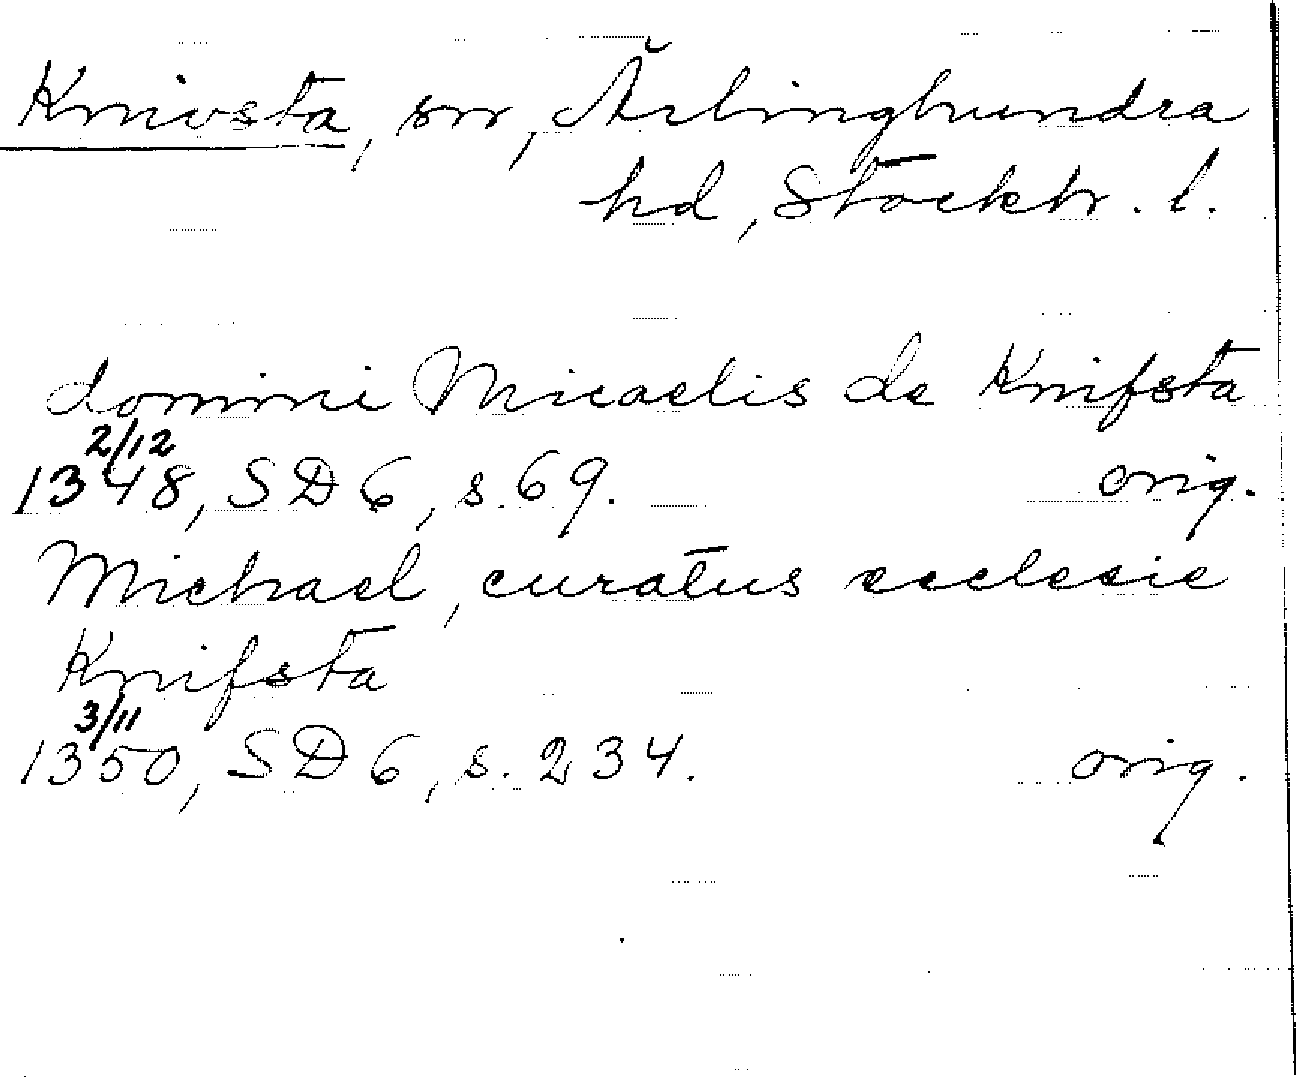 Knivsta, sn, Ärlinghundra
hd, Stockh. l.
domini Micaelis de Knifsta
1348 2/12, SD 6, s. 69. orig.
Michael, curatus ecclesie
Knifsta
1350 3/11, SD 6, s. 234. orig.